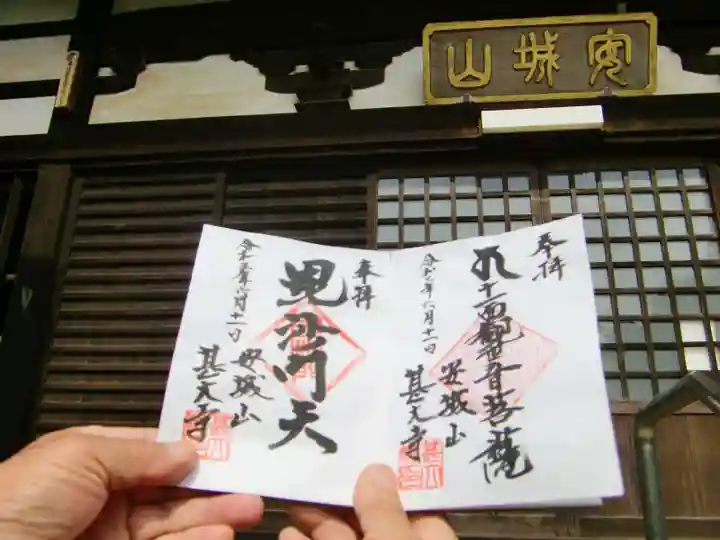 安城山
奉拝
十一面観世音菩薩
六月十一日
安城山
甚大寺
奉拝
毘沙門天
令和五年六月十一日
安城山
甚大寺